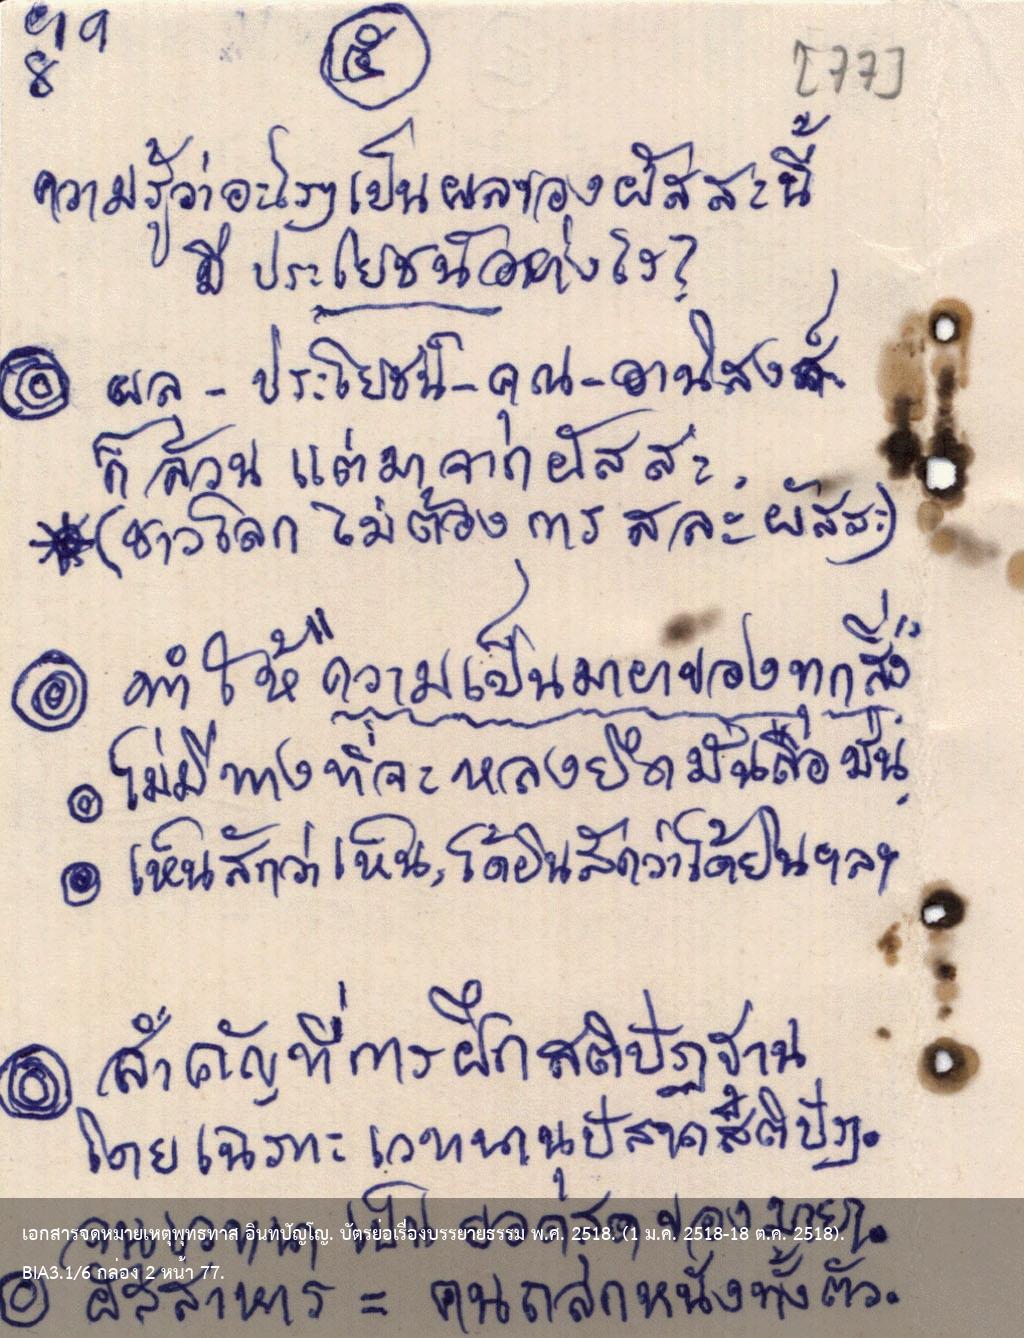 ๕
[77]
ความรู้ว่าอะไรๆ เป็นผลของผัสสะนี้
มี ประโยชน์อย่างไร?
ผล - ประโยชน์ - คุณ - อานิสงส์
ก็ล้วน แต่มาจากผัสสะ
(ชาวโลก ไม่ต้องการ สละ ผัสสะ)
ทำให้ "ความเป็นมายาของทุกสิ่ง"
ไม่มีทางที่จะหลงยึดมั่นถือมั่น
เห็นสักว่าเห็น, ได้ยินสักว่าได้ยิน ฯลฯ
สำคัญที่การฝึกสติปัฏฐาน
โดยเฉพาะ เวทนานุปัสสนาสติปัฏ.
เป็น ของ
ผัสสาหาร = คนถลกหนังทั้งตัว.
เอกสารจดหมายเหตุพุทธทาส อินทปัญโญ. บัตรย่อเรื่องบรรยายธรรม พ.ศ. 2518. (1 ม.ค. 2518-18 ต.ค. 2518).
BIA3.1/6 กล่อง 2 หน้า 77.